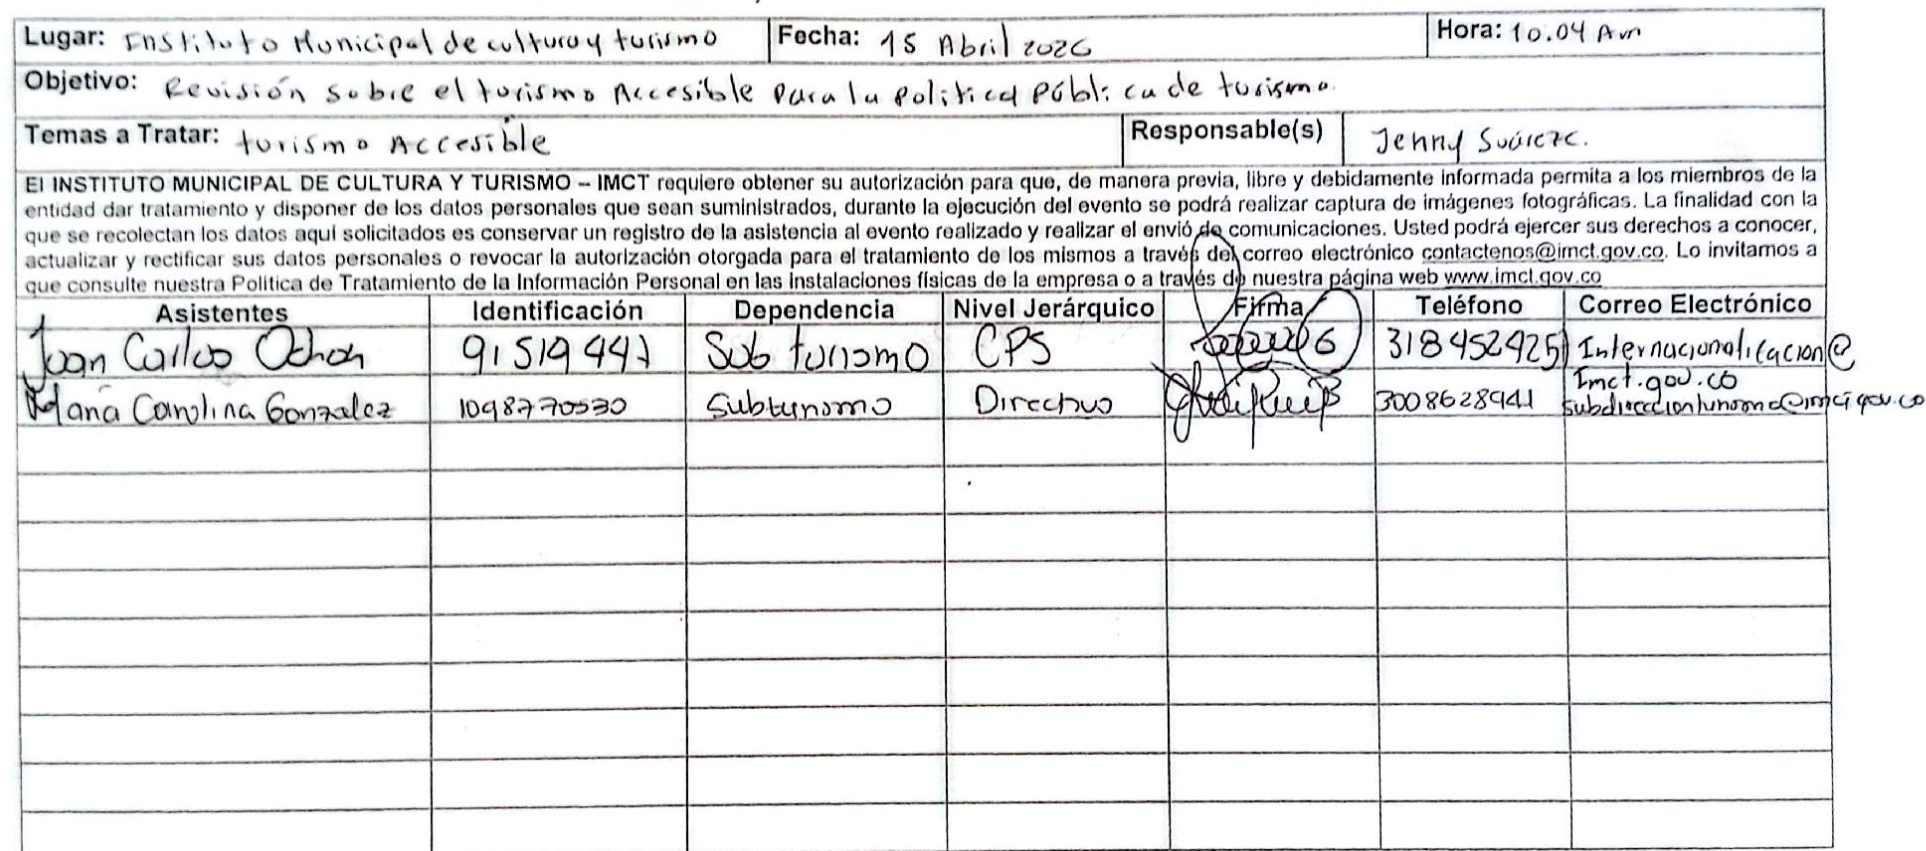 Lugar: Instituto Municipal de cultura y turismo Fecha: 15 Abril 2026 Hora: 10:04 Am
Objetivo: Revisión sobre el turismo Accesible para la política pública de turismo.
Temas a Tratar: turismo Accesible Responsable(s) Jenny Suárez C.
El INSTITUTO MUNICIPAL DE CULTURA Y TURISMO – IMCT requiere obtener su autorización para que, de manera previa, libre y debidamente informada permita a los miembros de la
entidad dar tratamiento y disponer de los datos personales que sean suministrados, durante la ejecución del evento se podrá realizar captura de imágenes fotográficas. La finalidad con la
que se recolectan los datos aquí solicitados es conservar un registro de la asistencia al evento realizado y realizar el envió de comunicaciones. Usted podrá ejercer sus derechos a conocer,
actualizar y rectificar sus datos personales o revocar la autorización otorgada para el tratamiento de los mismos a través del correo electrónico contactenos@imct.gov.co. Lo invitamos a
que consulte nuestra Política de Tratamiento de la Información Personal en las instalaciones físicas de la empresa o a través de nuestra página web www.imct.gov.co
Asistentes Identificación Dependencia Nivel Jerárquico Firma Teléfono Correo Electrónico
Juan Carlos Ochoa Sub turismo CPS 3184529251 Internacionalizacion@
Imct.gov.co
Maria Carolina Gonzalez 1098770530 Subturismo Directivo 3008628941 subdireccionturismo@imct.gov.co